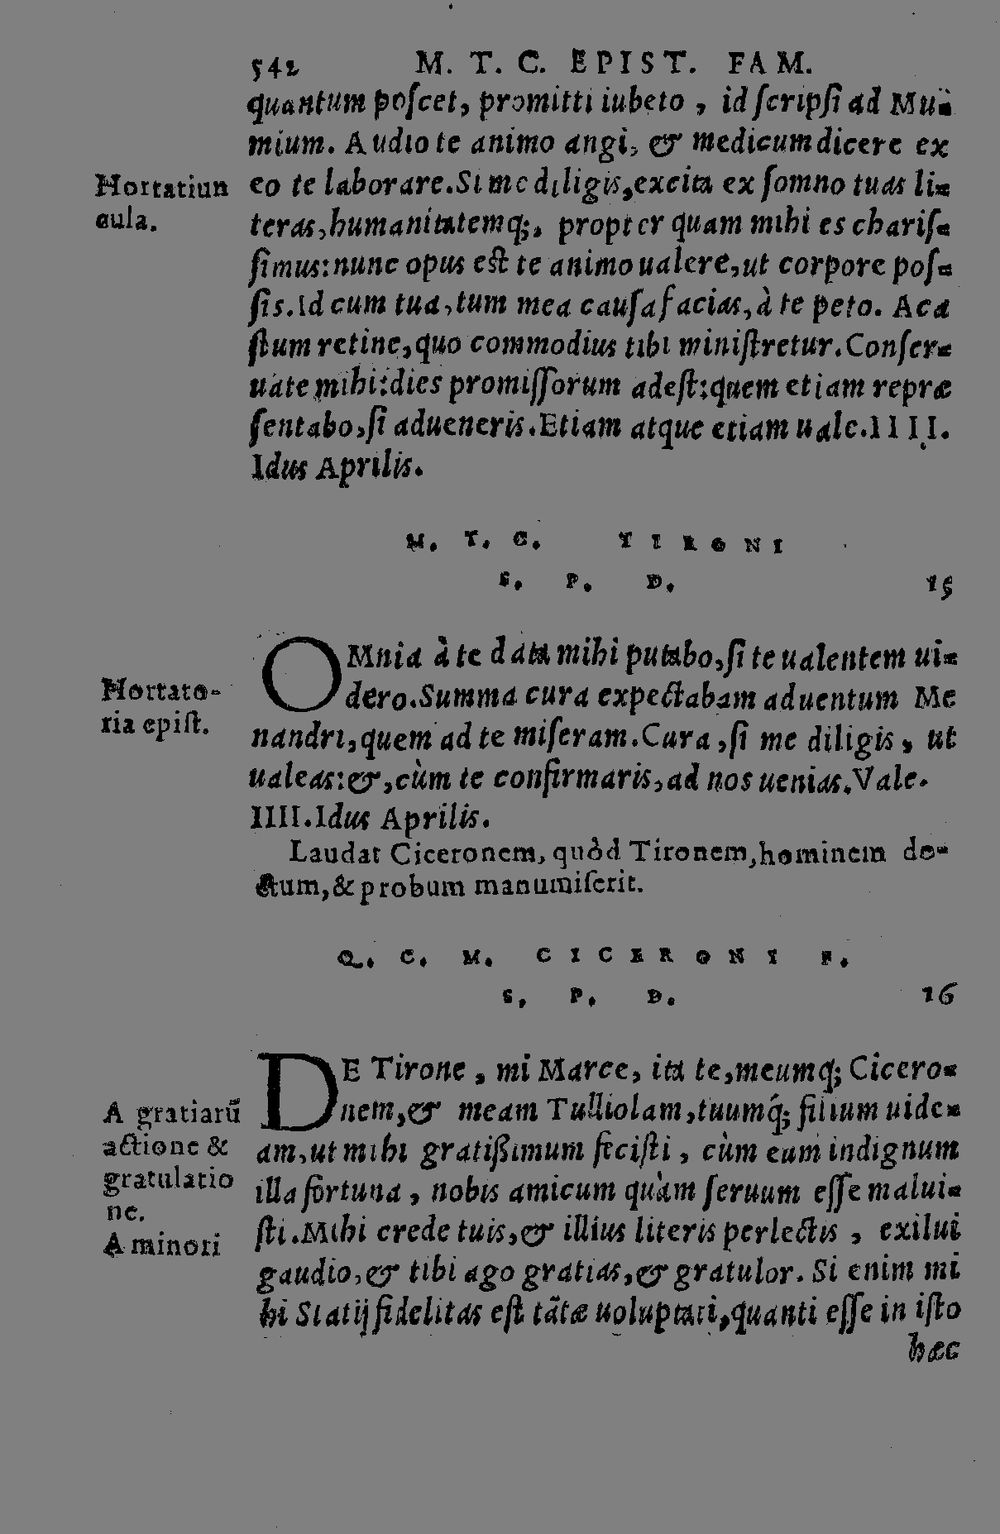 542 M. T. C. EPIST. FAM.
quantum poſcet, promitti iubeto, id ſcripſi ad Mum
mium. Audio te animo angi, & medicum dicere ex
Hortatiun
eo te laborare. Si me diligis, excita ex ſomno tuas li-
cula.
teras, humanitatemq;, propter quam mihi es chariſ-
ſimus: nunc opus eſt te animo ualere, ut corpore poſ-
ſis. Id cum tua, tum mea cauſa facias, à te peto. Aca
ſtum retine, quo commodius tibi miniſtretur. Conſer-
uate mihi: dies promiſſorum adeſt: quem etiam repræ
ſentabo, ſi adueneris. Etiam atque etiam uale. IIII.
Idus Aprilis.
M. T. C. TIRONI
S. P. D. 15
OMnia à te data mihi putabo, ſi te ualentem ui-
Hortato-
dero. Summa cura expectabam aduentum Me
ria epiſt.
nandri, quem ad te miſeram. Cura, ſi me diligis, ut
ualeas: &, cùm te confirmaris, ad nos uenias. Vale.
IIII. Idus Aprilis.
Laudat Ciceronem, quòd Tironem, hominem do-
ctum, & probum manumiſerit.
Q. C. M. CICERONI F.
S. P. D. 16
DE Tirone, mi Marce, ita te, meumq; Cicero-
A gratiarū
nem, & meam Tulliolam, tuumq́; filium uide-
actione &
am, ut mihi gratiſsimum feciſti, cùm eum indignum
gratulatio
illa fortuna, nobis amicum quàm ſeruum eſſe malui-
ne.
ſti. Mihi crede tuis, & illius literis perlectis, exilui
A minori
gaudio, & tibi ago gratias, & gratulor. Si enim mi
hi Statij fidelitas eſt tātæ uoluptati, quanti eſſe in iſto
hæc